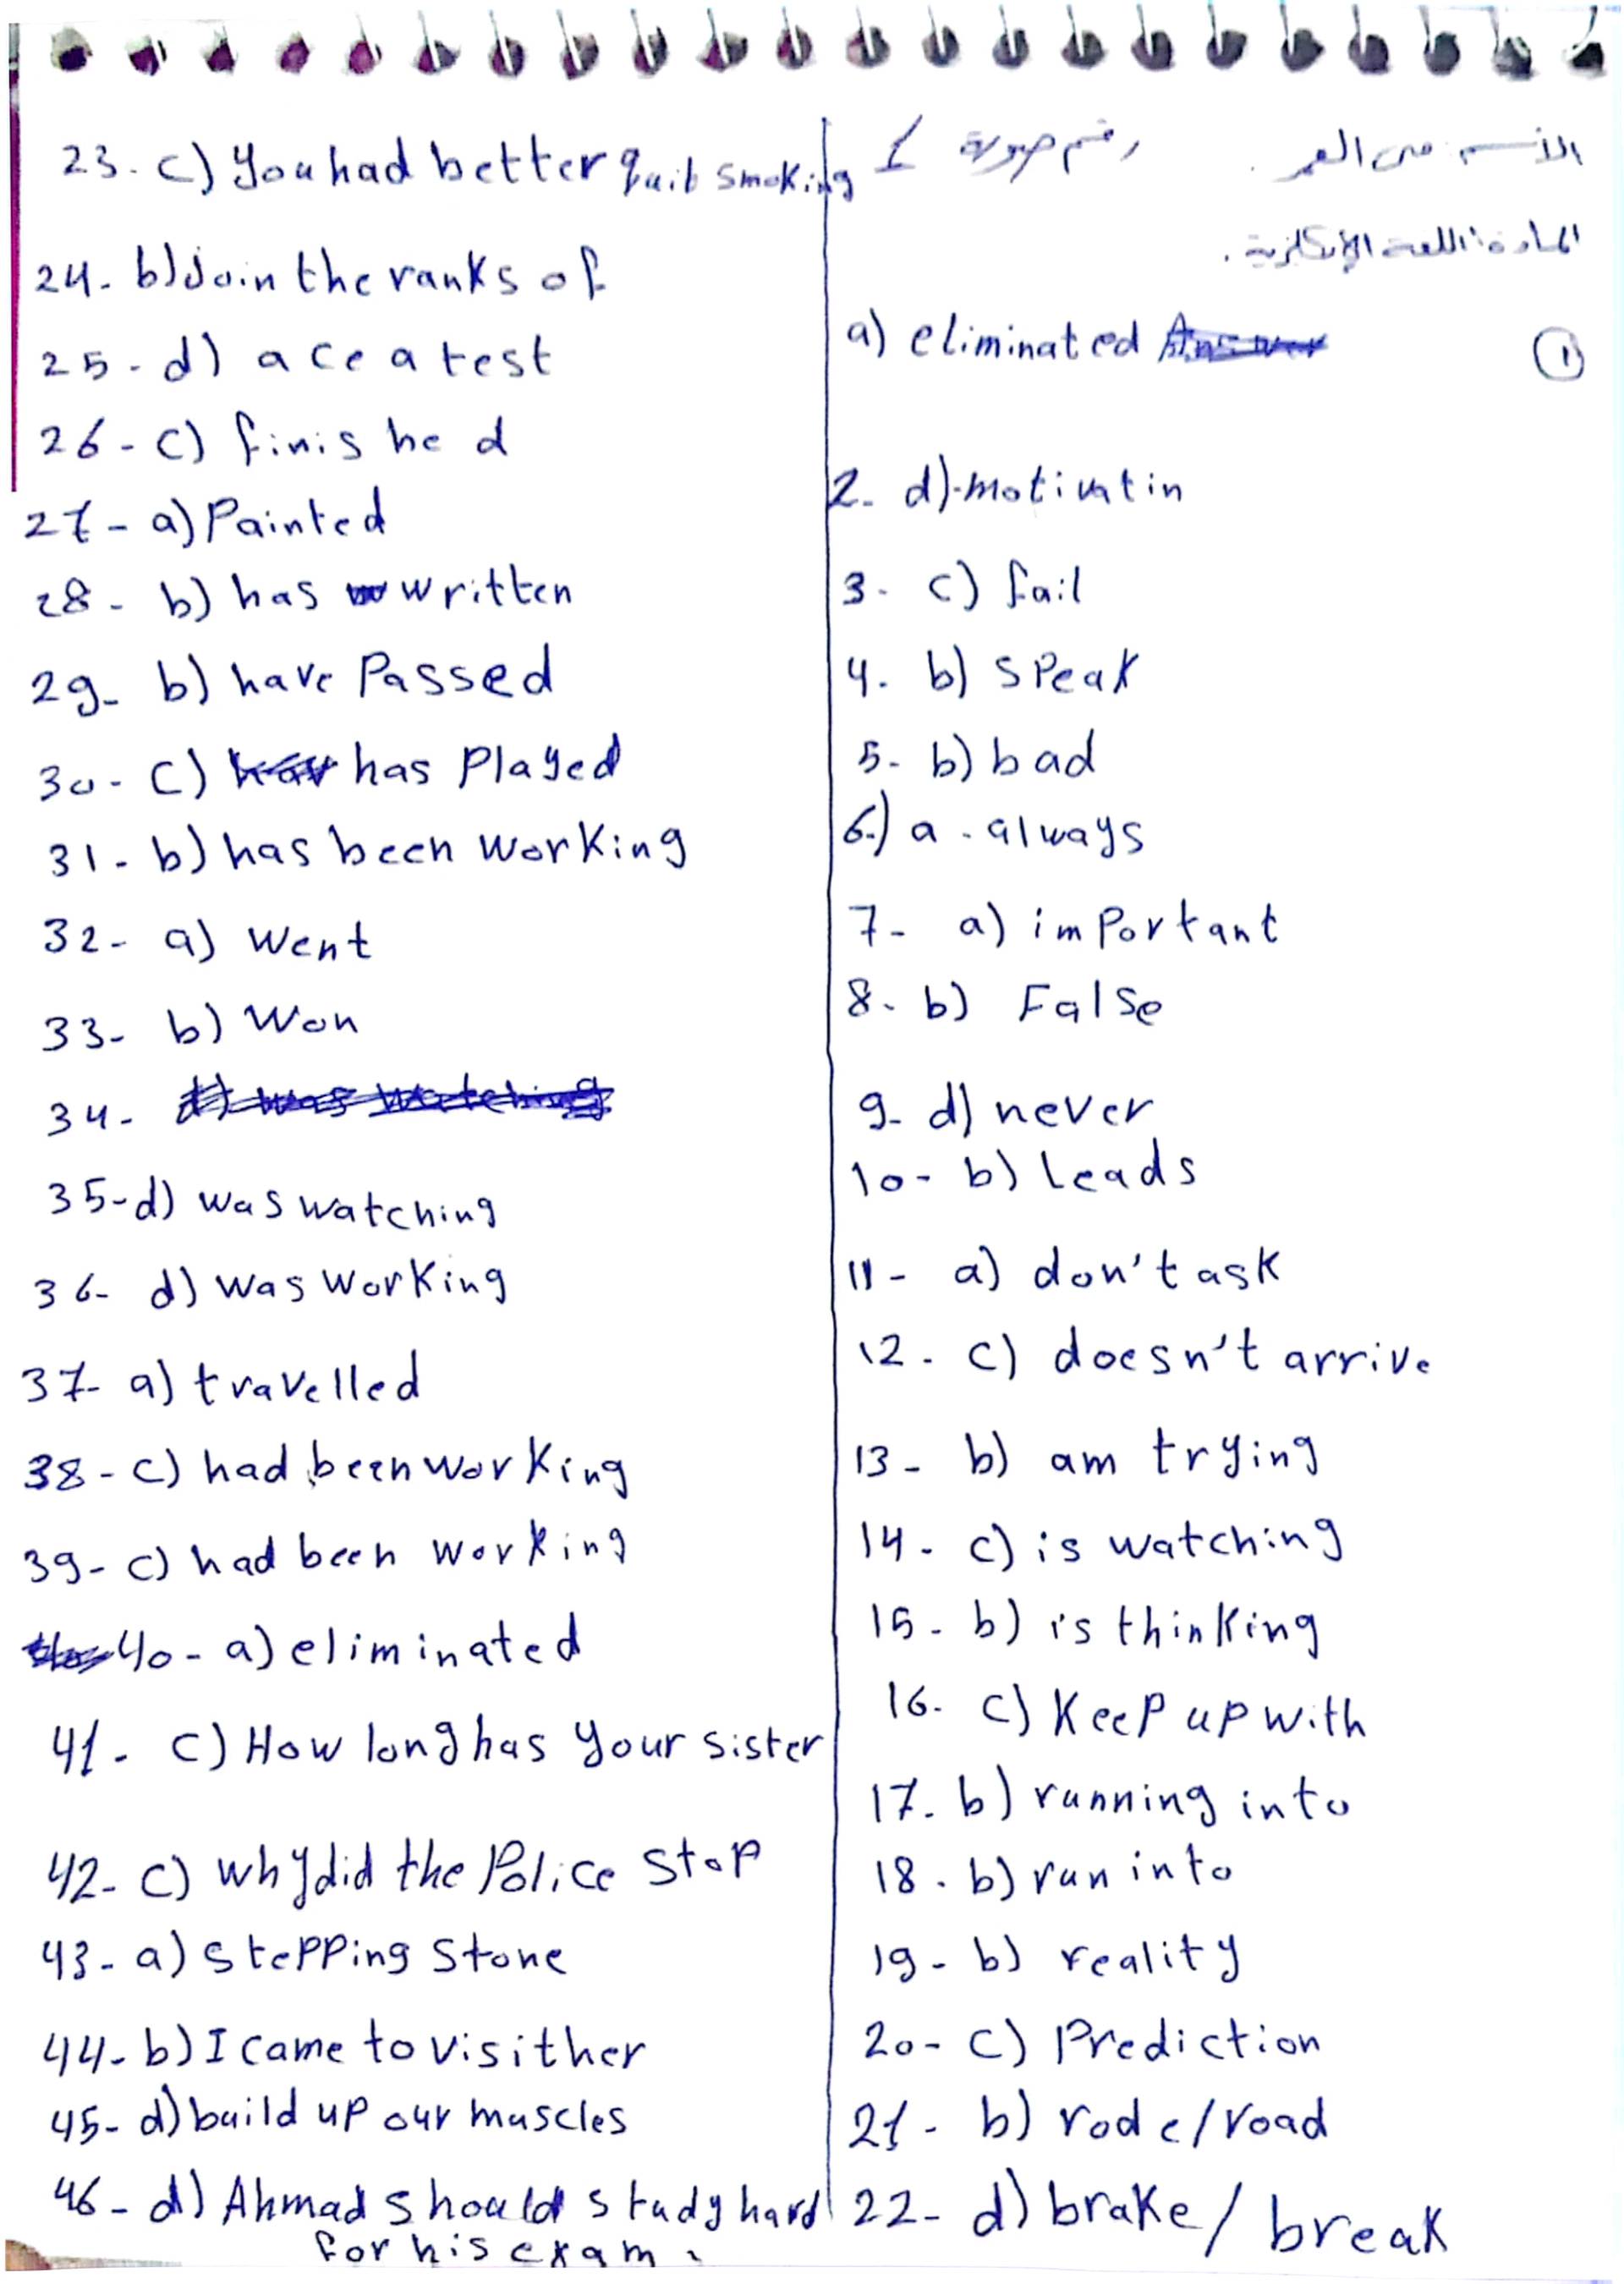 الأسم: منى العمر.
رقم صورة 1
المادة: اللغة الإنكليزية.
①
a) eliminated
2- d) motivatin
3- c) fail
4- b) speak
5- b) bad
6-) a - always
7- a) important
8- b) False
9- d) never
10- b) leads
11- a) don't ask
12- c) doesn't arrive
13- b) am trying
14- c) is watching
15- b) is thinking
16- c) Keep up with
17- b) running into
18- b) run into
19- b) reality
20- c) Prediction
21- b) rode/road
22- d) brake/break
23- c) You had better quit smoking
24- b) Join the ranks of
25- d) ace a test
26- c) finished
27- a) Painted
28- b) has written
29- b) have Passed
30- c) has Played
31- b) has been working
32- a) went
33- b) Won
34-
35- d) was watching
36- d) was working
37- a) travelled
38- c) had been working
39- c) had been working
40- a) eliminated
41- c) How long has your sister
42- c) why did the Police stop
43- a) stepping stone
44- b) I came to visit her
45- d) build up our muscles
46- d) Ahmad should study hard
for his exam.